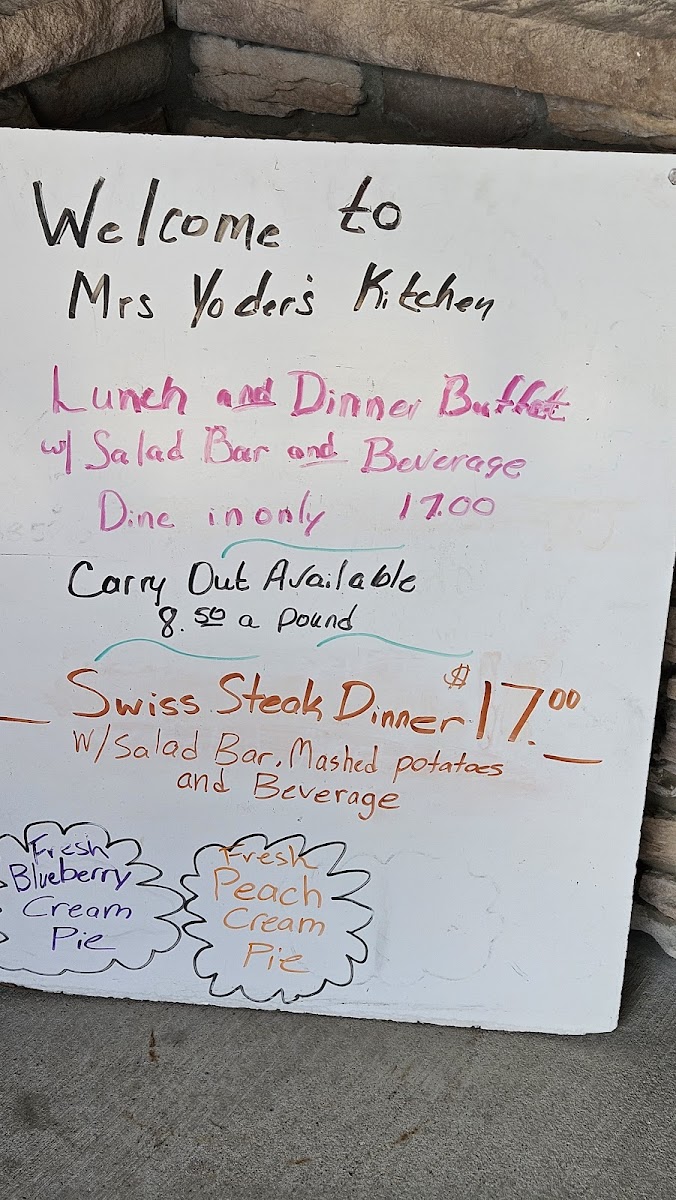 Welcome to
Mrs Yoder's Kitchen
Lunch and Dinner Buffet
w/ Salad Bar and Beverage
Dine in only 17.00
Carry Out Available
8.50 a pound
Swiss Steak Dinner $17.00
w/Salad Bar, Mashed potatoes
and Beverage
Fresh
Blueberry
Cream
Pie
Fresh
Peach
Cream
Pie